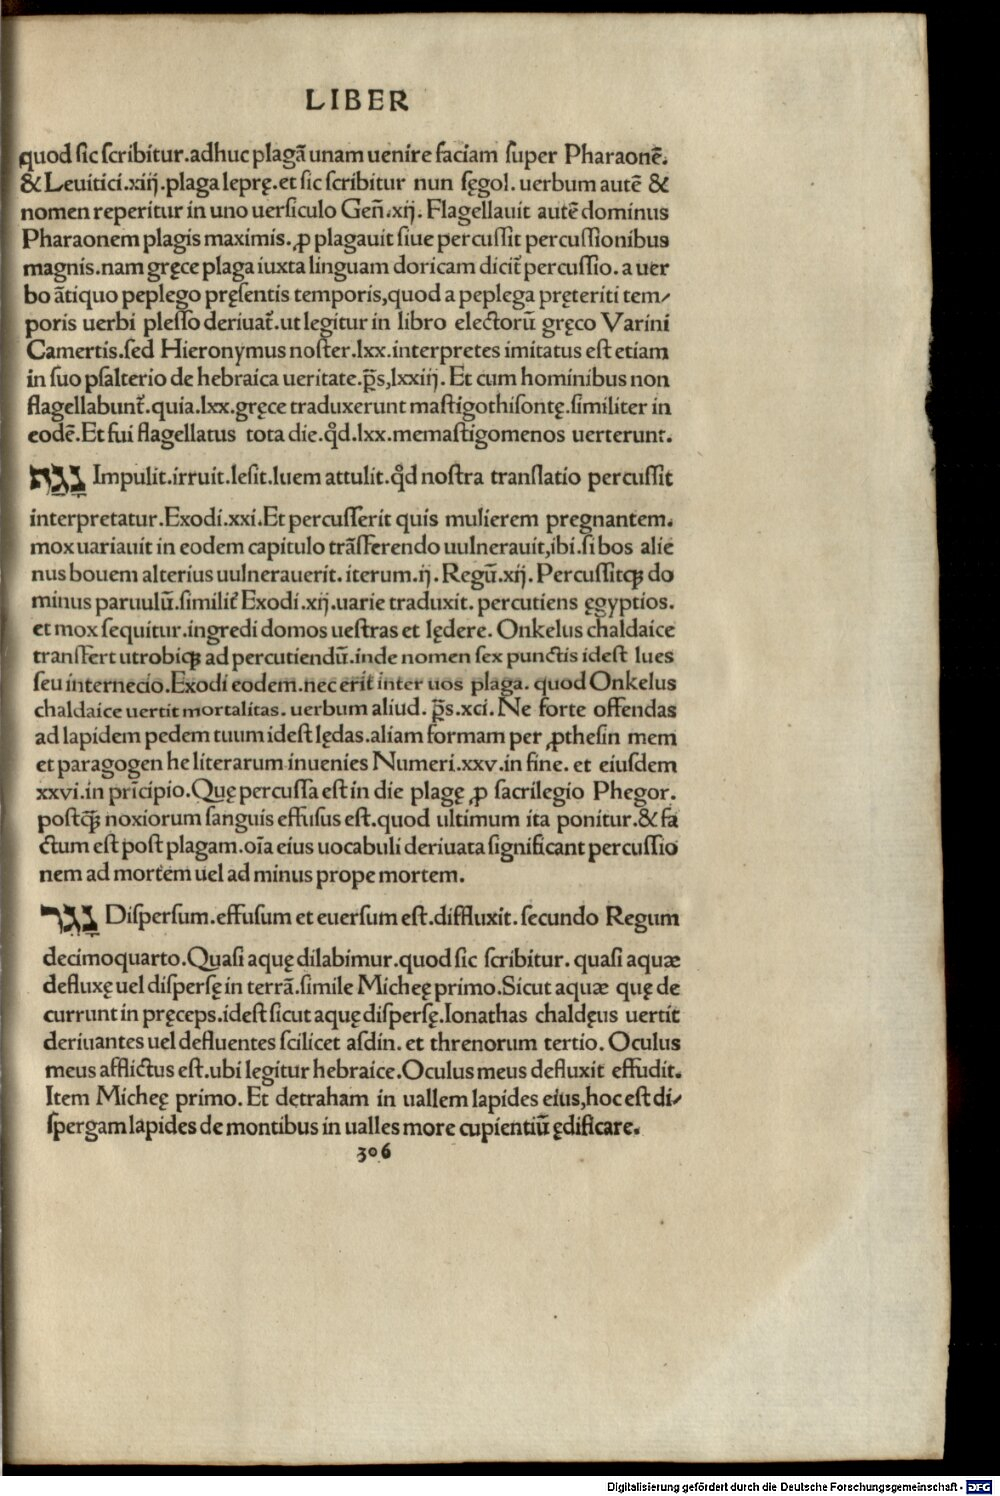 LIBER
quod sic scribitur.adhuc plagã unam uenire faciam super Pharaonẽ.
& Leuitici.xiij.plaga leprę.et sic scribitur nun sęgol. uerbum autẽ &
nomen reperitur in uno uersiculo Geñ.xij. Flagellauit autẽ dominus
Pharaonem plagis maximis.ꝓ plagauit siue percussit percussionibus
magnis.nam gręce plaga iuxta linguam doricam dicit᷑ percussio. a uer
bo ãtiquo peplego pręsentis temporis,quod a peplega pręteriti tem⸗
poris uerbi plesso deriuat᷑.ut legitur in libro electorũ gręco Varini
Camertis.sed Hieronymus noster.lxx.interpretes imitatus est etiam
in suo psalterio de hebraica ueritate.p̃s,lxxiij. Et cum hominibus non
flagellabunt᷑.quia.lxx.gręce traduxerunt mastigothisontę.similiter in
eodẽ.Et fui flagellatus tota die.qđ.lxx.memastigomenos uerterunt.
נָגַח Impulit.irruit.lesit.luem attulit.qđ nostra translatio percussit
interpretatur.Exodi.xxi.Et percusserit quis mulierem pregnantem.
mox uariauit in eodem capitulo trãsferendo uulnerauit,ibi.si bos alie
nus bouem alterius uulnerauerit. iterum.ij. Regũ.xij. Percussitqꝫ do
minus paruulũ.similit᷑ Exodi.xij.uarie traduxit. percutiens ęgyptios.
et mox sequitur.ingredi domos uestras et lędere. Onkelus chaldaice
transfert utrobiqꝫ ad percutiendũ.inde nomen sex punctis idest lues
seu internecio.Exodi eodem.nec erit inter uos plaga. quod Onkelus
chaldaice uertit mortalitas. uerbum aliud. p̃s.xci. Ne forte offendas
ad lapidem pedem tuum idest lędas.aliam formam per ꝓthesin mem
et paragogen he literarum inuenies Numeri.xxv.in fine. et eiusdem
xxvi.in prĩcipio.Quę percussa est in die plagę ꝓ sacrilegio Phegor.
postq̃ꝫ noxiorum sanguis effusus est.quod ultimum ita ponitur.& fa
ctum est post plagam.oĩa eius uocabuli deriuata significant percussio
nem ad mortem uel ad minus prope mortem.
נָגַר Dispersum.effusum et euersum est.diffluxit. secundo Regum
decimoquarto.Quasi aquę dilabimur.quod sic scribitur. quasi aquæ
defluxę uel dispersę in terrã.simile Micheę primo.Sicut aquæ quę de
currunt in pręceps.idest sicut aquę dispersę.Ionathas chaldęus uertit
deriuantes uel defluentes scilicet asdin. et threnorum tertio. Oculus
meus afflictus est.ubi legitur hebraice.Oculus meus defluxit effudit.
Item Micheę primo. Et detraham in uallem lapides eius,hoc est di⸗
spergam lapides de montibus in ualles more cupientiũ ędificare.
306
Digitalisierung gefördert durch die Deutsche Forschungsgemeinschaft - DFG